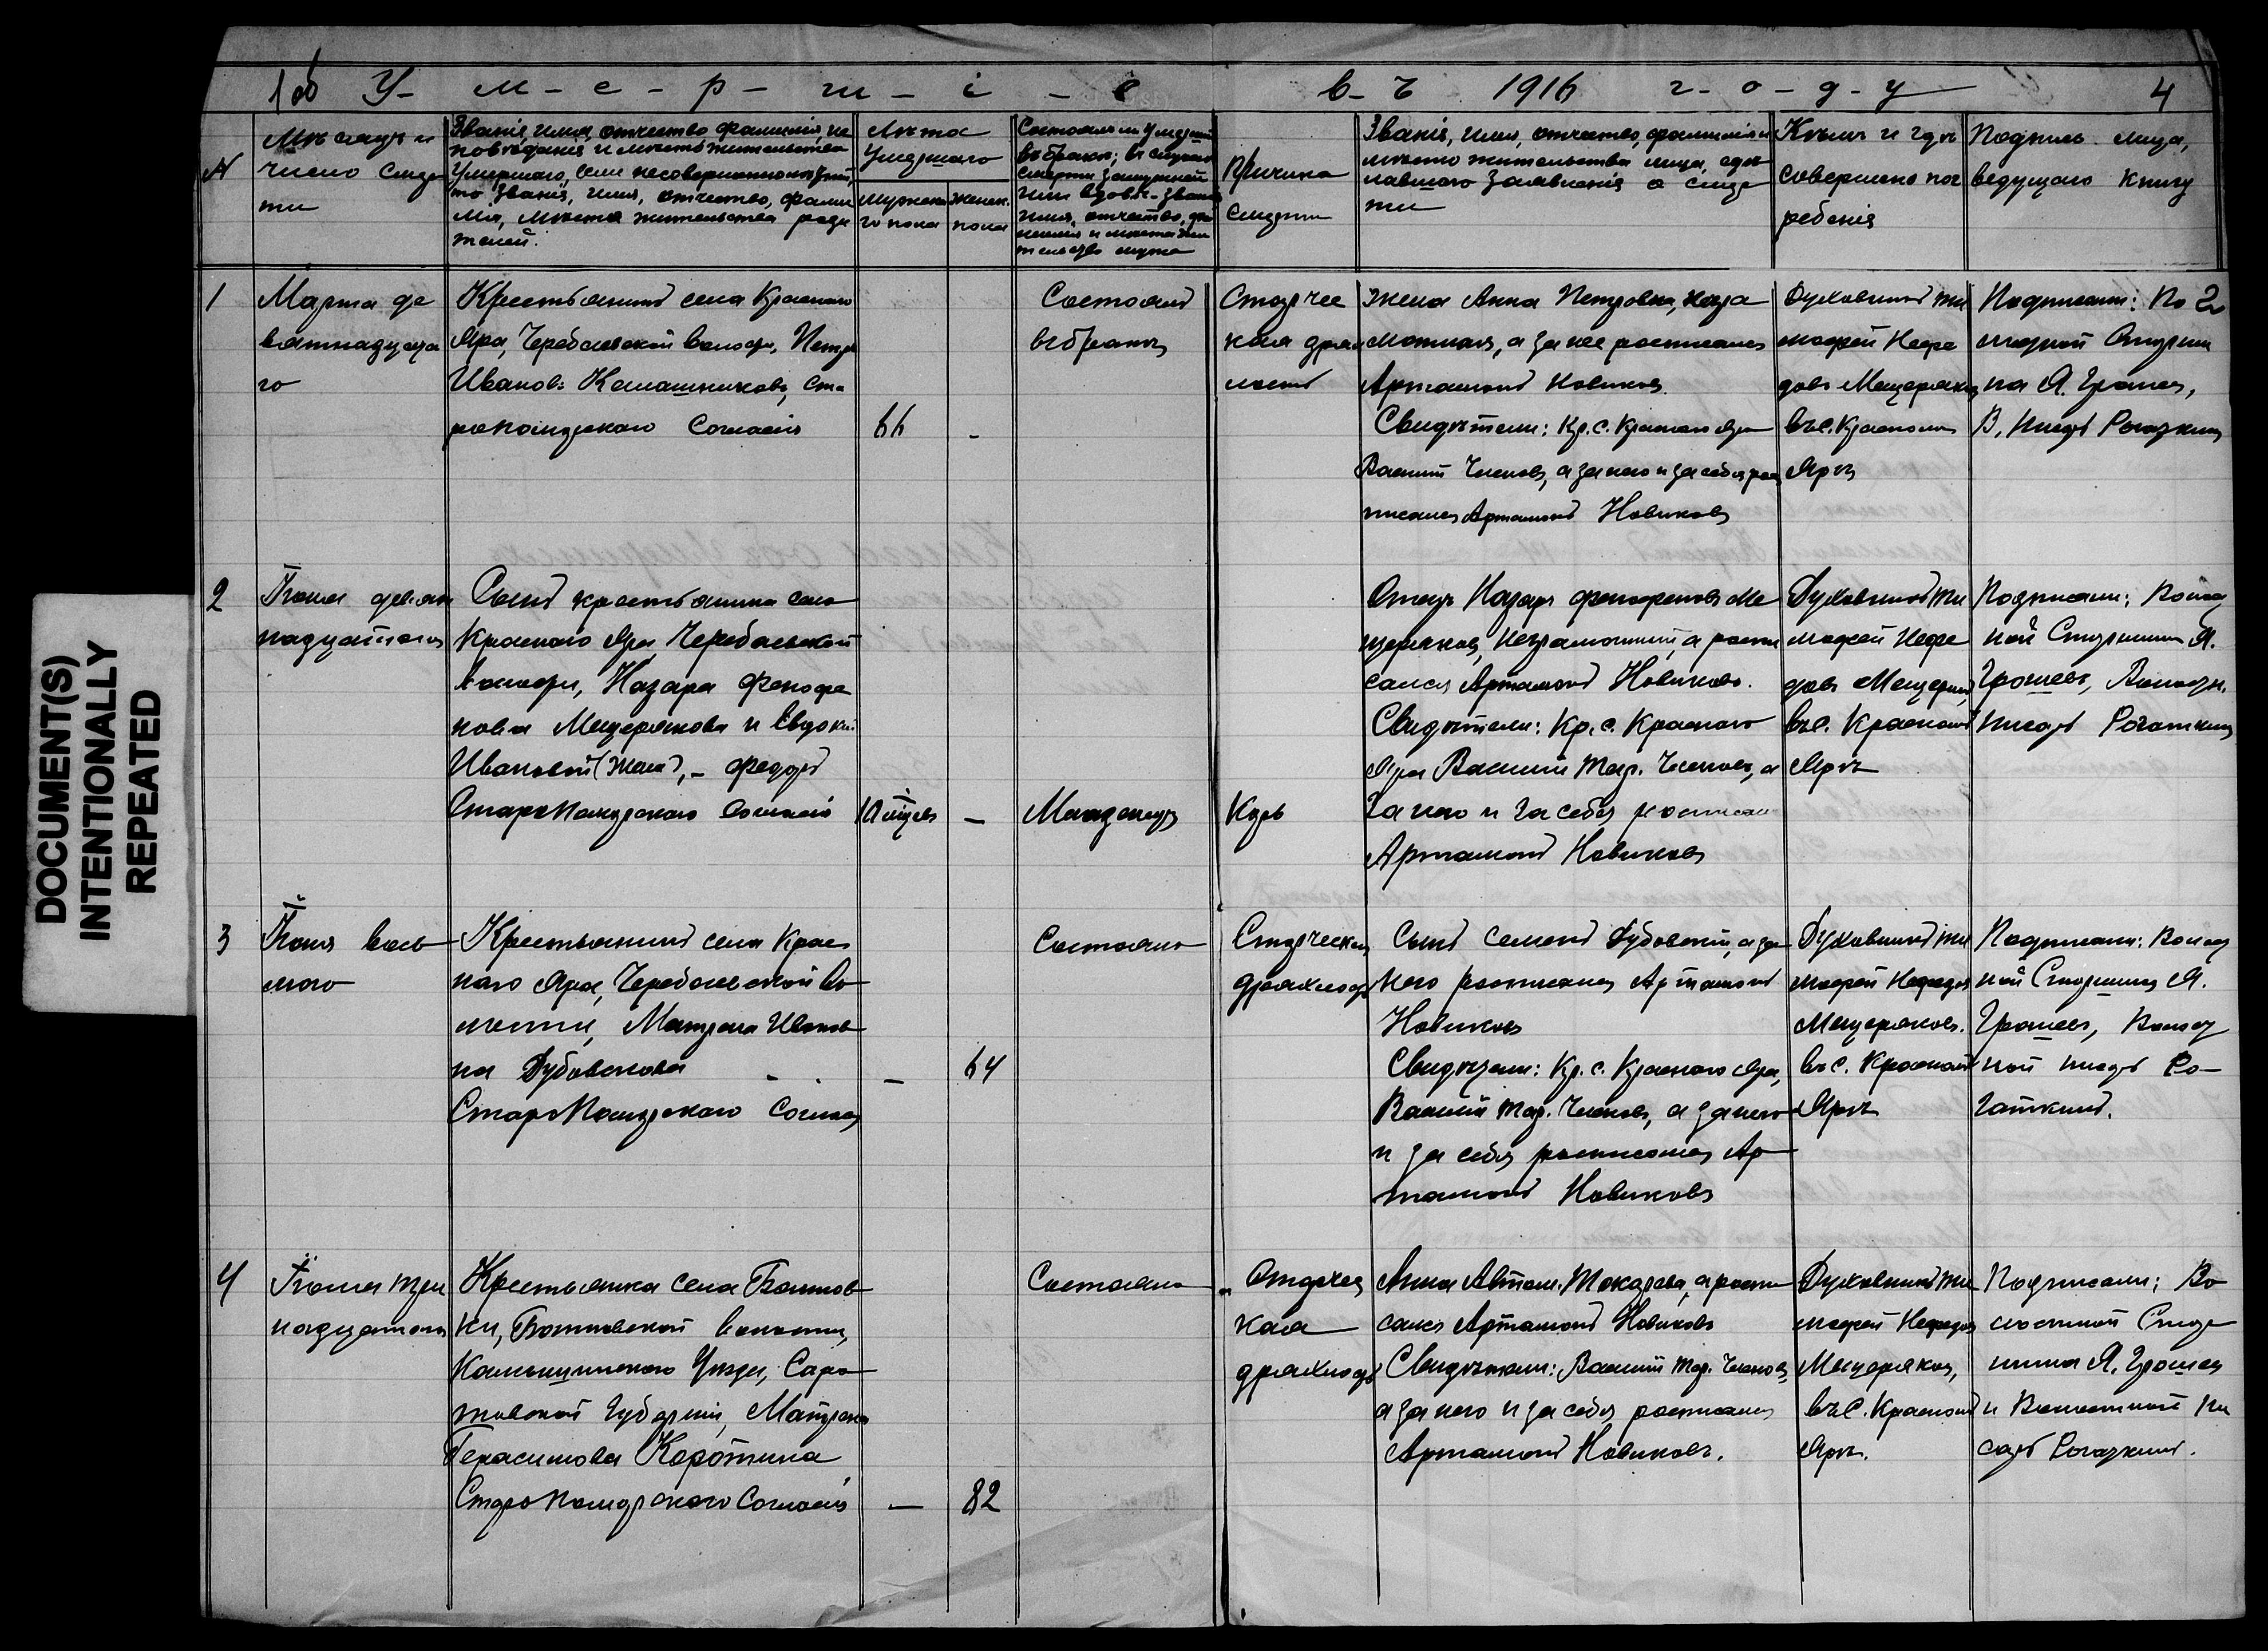 DOCUMENT(S)
INTENTIONALLY
REPEATED
У-м-е-р-ш-і-е
в-ъ 1916 г-о-д-у
4
№
Мѣсяцъ и
число смер
ти
Званіе, имя, отчество фамилія, ис
повѣданіе и мѣсто жительства
умершаго, если несовершеннолѣтній,
то званіе, имя, отчество, фами
лія, мѣсто жительства роди
телей.
Лѣта
умершаго
мужска
го пола
женск.
пола
Состоялъ ли умершій
въ бракѣ; въ случаѣ
смерти замужней
или вдовы - званіе
имя, отчество, фа
милія и мѣсто жи
тельство мужа
Причина
смерти
Званіе, имя, отчество, фамилія и
мѣсто жительства лица, сдѣ
лавшаго заявленіе о смер
ти
Кѣмъ и гдѣ
совершено пог
ребеніе
Подпись лица,
ведущаго книгу
1
Марта де
вятнадцата
го
Крестьянинъ села Краснаго
Яра, Черебаевской волости, Петръ
Ивановъ Калашниковъ, Ста
ропоморскаго Согласія
66
-
Состоялъ
въ бракѣ
Старчес
кая дрях
лость
Жена Анна Петровна, негра
мотная, а за нее росписался
Артамонъ Новиковъ.
Свидѣтели: Кр. с. Краснаго Яра
Василій Чекновъ, а за него и за себя рос
писался Артамонъ Новиковъ
Духовникъ Ти
мофей Нефе
довъ Мещеряковъ
въ с. Красномъ
Ярѣ
Подписали:
Старши
на Я. Грошевъ,
В. Писарь Рогаткинъ
2
Іюня девят
надцатаго
Сынъ крестьянина села
Краснаго Яра Черебаевской
волости, Назара
Мещерякова и Евдокіи
Ивановой (жена), - Федоръ
Старопоморскаго Согласія
-
Младенецъ
Корь
Отецъ Назаръ Ме
щеряковъ, неграмотный, а роспи
сался Артамонъ Новиковъ.
Свидѣтели: Кр. с. Краснаго
Яра Василій Чекновъ, а
за него и за себя росписал
Артамонъ Новиковъ
Духовникъ Ти
мофей Нефе
довъ Мещеряк
въ с. Красномъ
Ярѣ
Подписали: Волост
ной Старшина Я.
Грошевъ, Волостн.
писарь Рогаткинъ
3
Іюня вось
мого
Крестьянинъ села Крас
наго Яра, Черебаевской во
лости, Матрена Иванов
на Дубовскова
Старопоморскаго Согласія
-
64
Состояла
Старческая
дряхлость
Сынъ Семенъ Дубовской, а за
него росписался Артамонъ
Новиковъ
Свидѣтели: Кр. с. Краснаго Яра,
Василій Чекновъ, а за него
и за себя росписался Ар
тамонъ Новиковъ
Духовникъ Ти
мофей Нефедовъ
Мещеряковъ.
въ с. Красномъ
Ярѣ
Подписали: Волост
ной Старшина Я.
Грошевъ, Волост
ной писарь Ро-
гаткинъ.
4
Іюня три
надцатаго
Крестьянка села
ки, волости,
Камышинскаго Уѣзда, Сара
товской Губерніи, Матрена
Герасимова Коротина
Старопоморскаго Согласія
-
82
Состояла
Старчес
кая
дряхлость
Анна Токарева, а роспи
сался Артамонъ Новиковъ
Свидѣтели: Василій Чекновъ,
а за него и за себя росписался
Артамонъ Новиковъ.
Духовникъ Ти
мофей Нефедовъ
Мещеряковъ,
въ с. Красномъ
Ярѣ.
Подписали: Во
лостной Старш
шина Я. Грошевъ
и Волостной Пи
сарь Рогаткинъ.